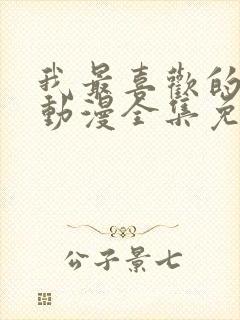 我最喜歡的
動漫全集免
公子景七